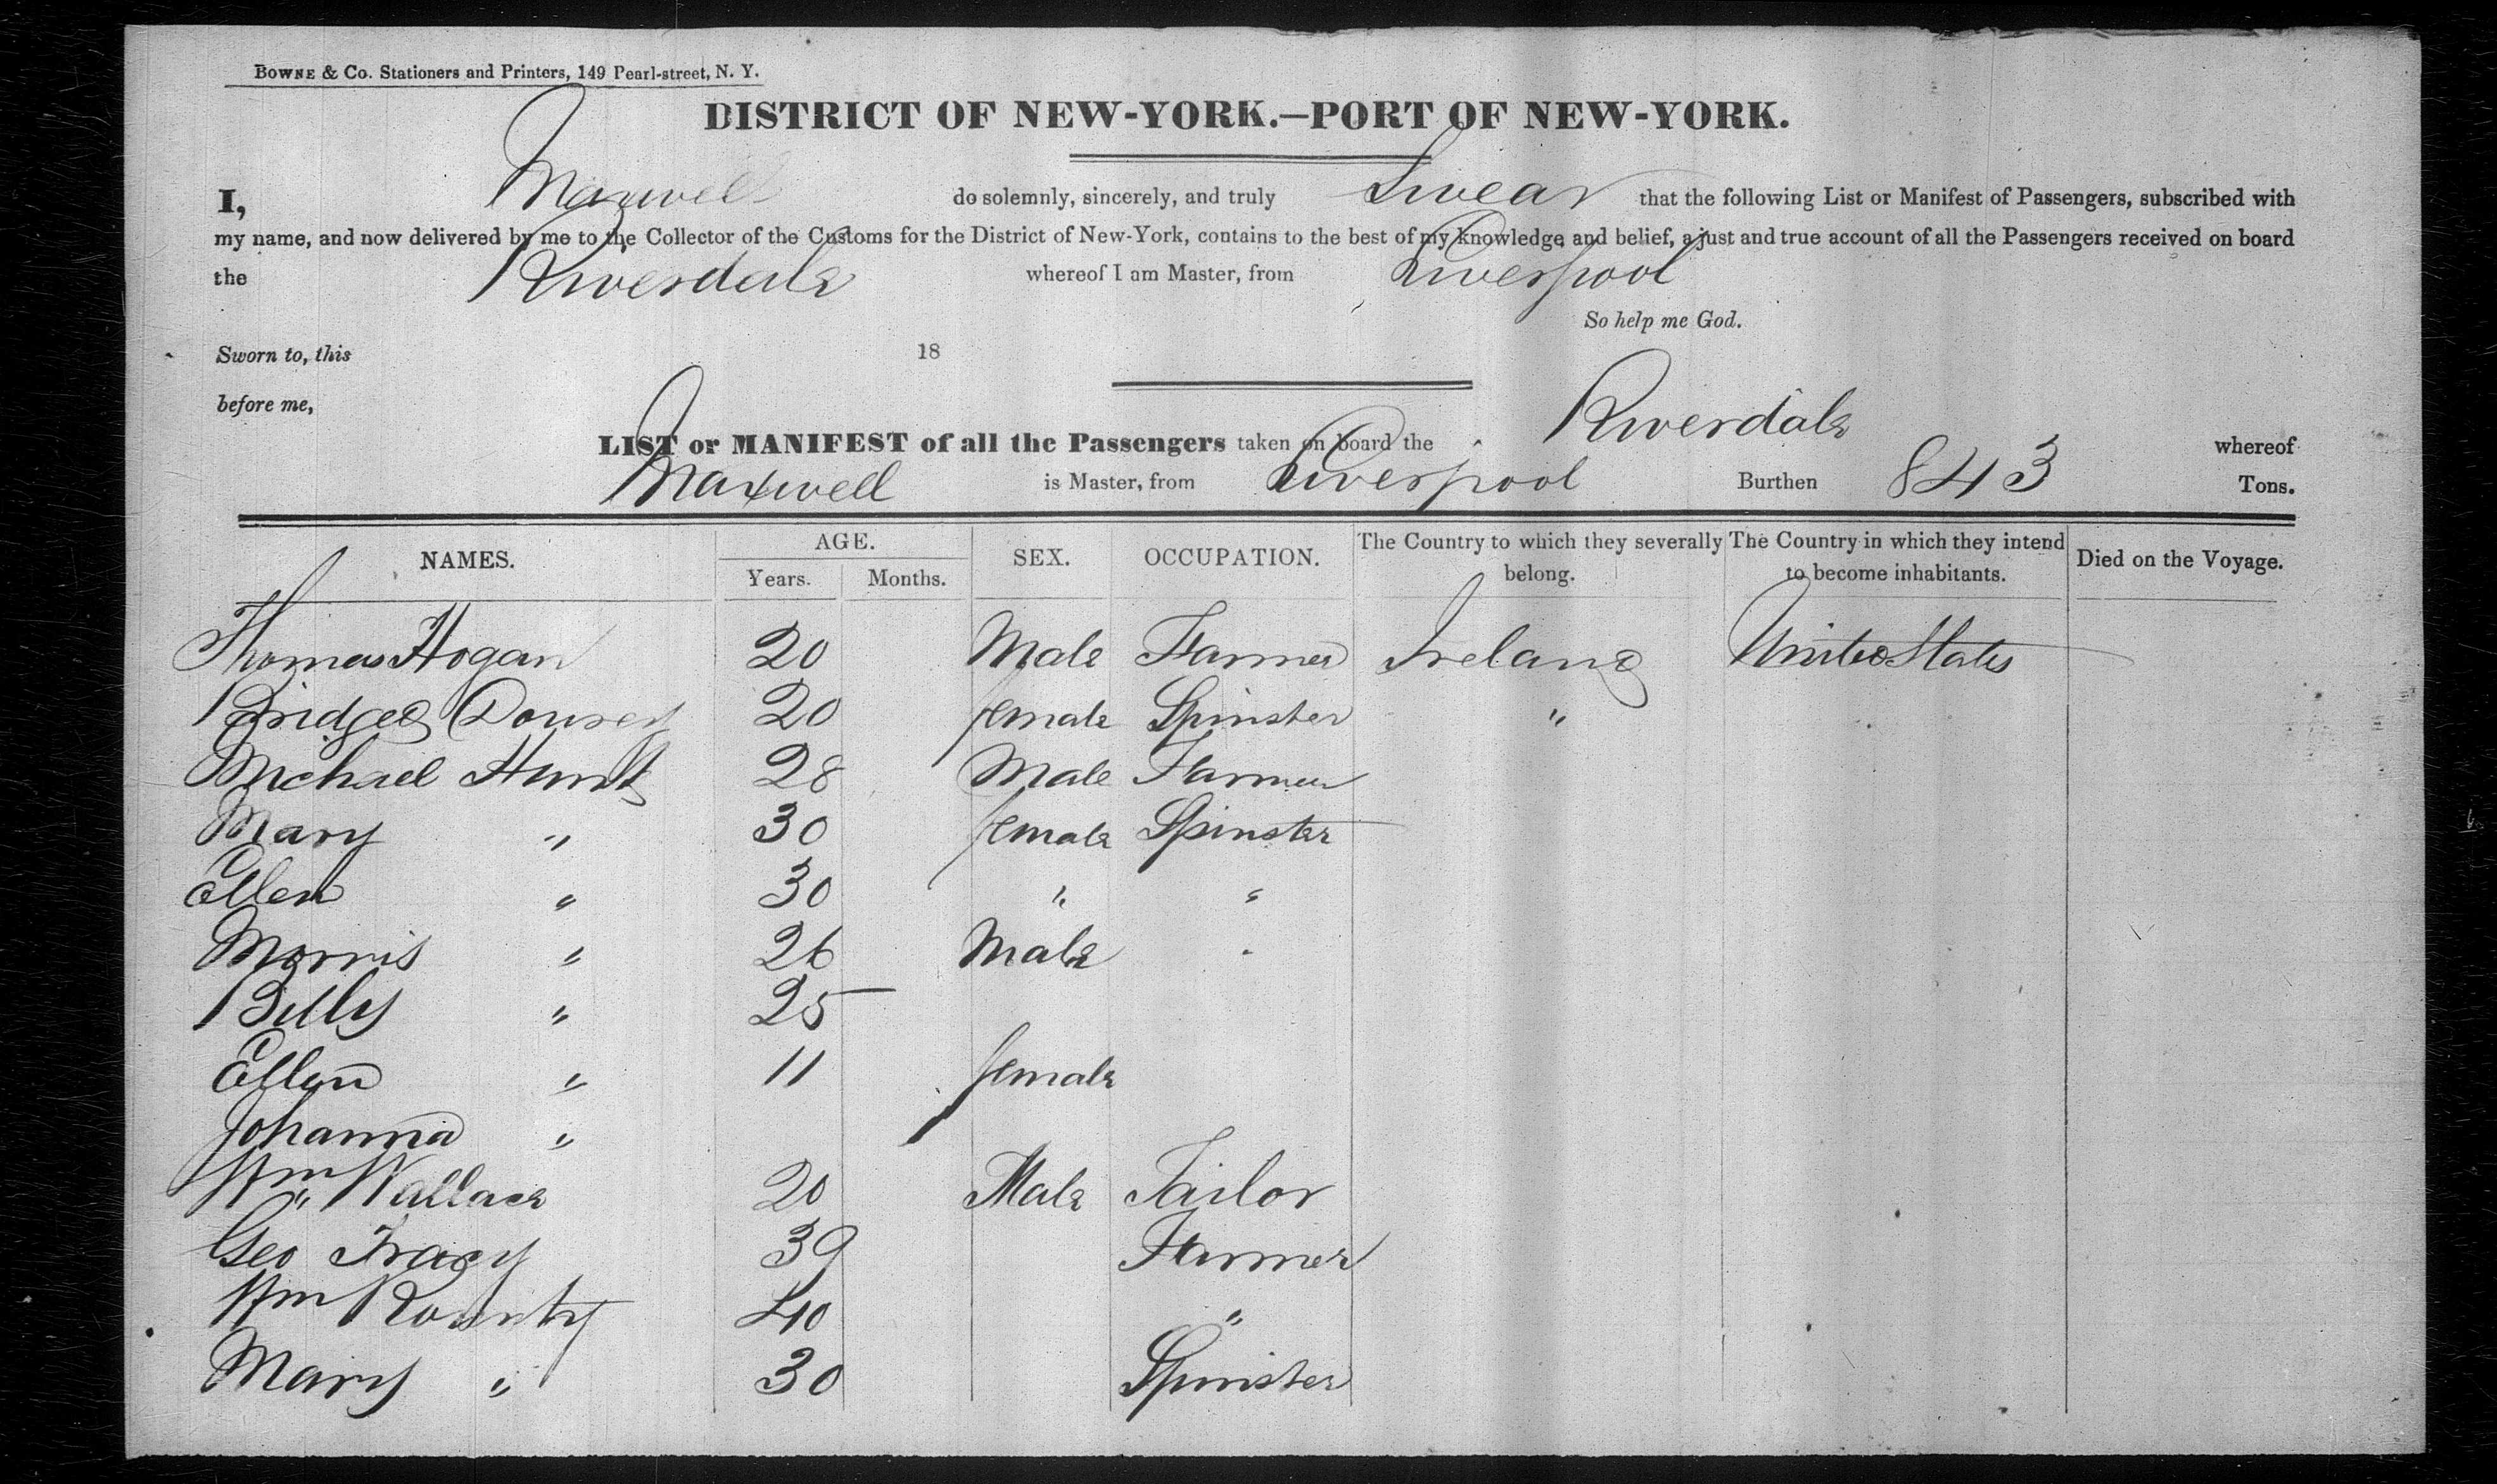 BOWNE & CO. Stationers and Printers, 149 Pearl-street, N. Y.
DISTRICT OF NEW-YORK.—PORT OF NEW-YORK.
I, Maxwell do solemnly, sincerely, and truly Swear that the following List or Manifest of Passengers, subscribed with
my name, and now delivered by me to the Collector of the Customs for the District of New-York, contains to the best of my knowledge and belief, a just and true account of all the Passengers received on board
the Riverdale whereof I am Master, from Liverpool
So help me God.
Sworn to, this 18
before me,
LIST or MANIFEST of all the Passengers taken on board the Riverdale whereof
Maxwell is Master, from Liverpool Burthen 843 Tons.
NAMES. AGE. Years. Months. SEX. OCCUPATION. The Country to which they severally belong. The Country in which they intend to become inhabitants. Died on the Voyage.
Thomas Hogan 20 Male Farmer Ireland United States
Bridget 20 female Spinster "
Michael Hunt 28 Male Farmer
Mary " 30 female Spinster
Ellen " 30 " "
Morris " 26 Male "
Billy " 25
Ellen " 11 female
Johanna "
Wm Wallace 20 Male Tailor
Geo Tracy 39 Farmer
Wm 40 "
Mary " 30 Spinster